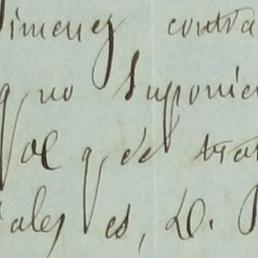 Jimenez contra
q no suponien
ol q de trat
ales es, D.